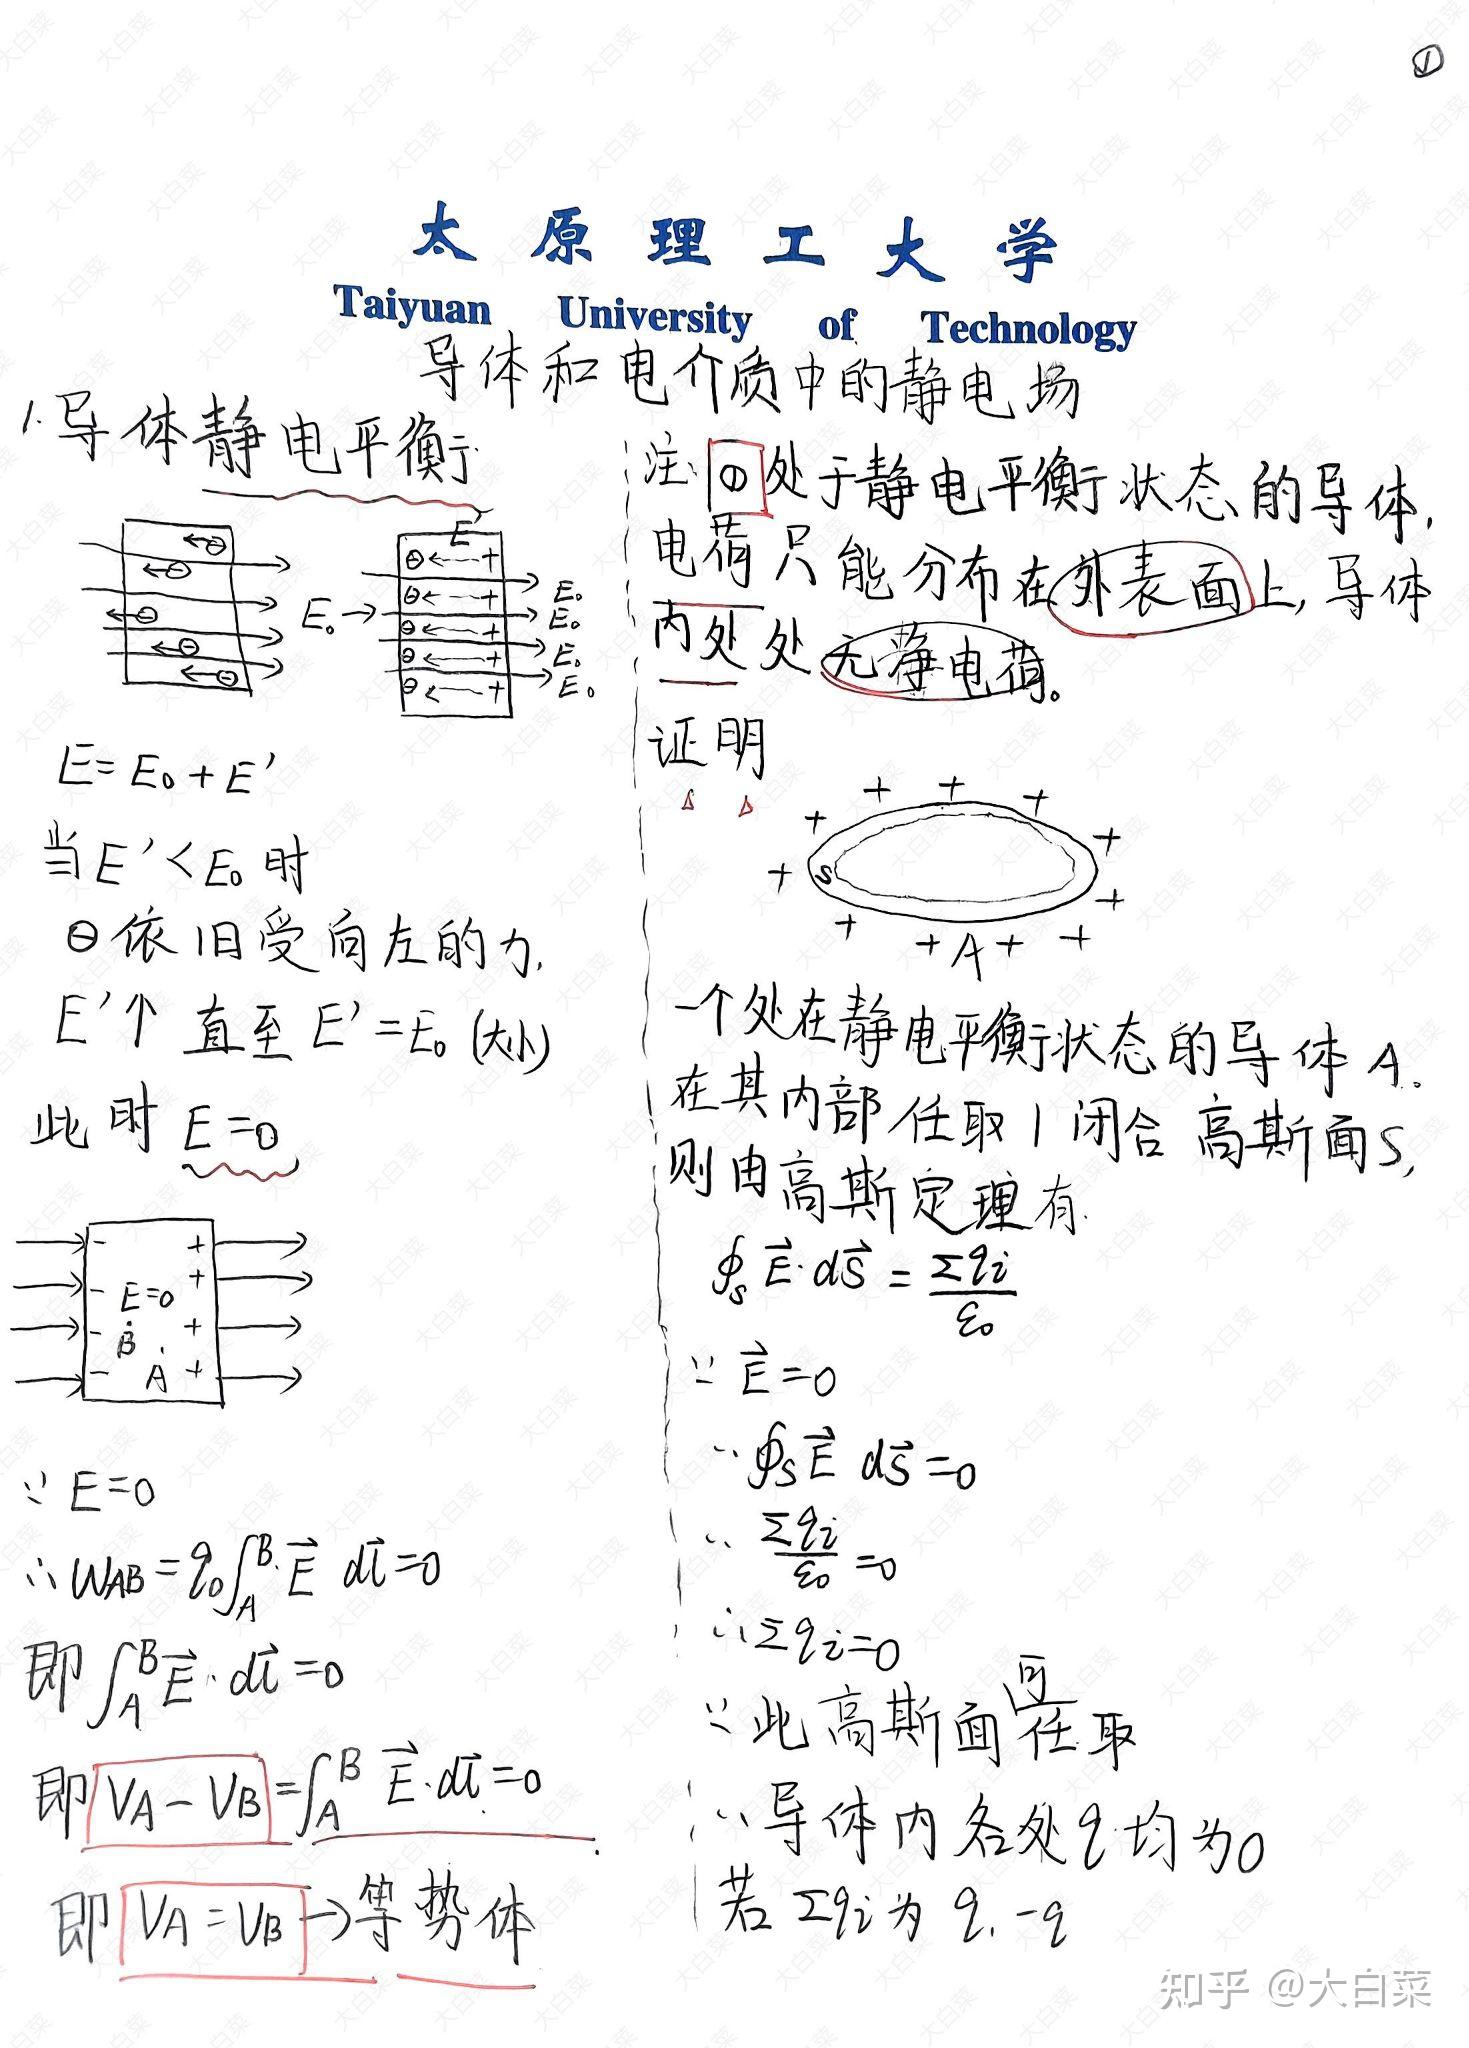 ①
太原理工大学
Taiyuan University of Technology
导体和电介质中的静电场
1. 导体静电平衡
E'
⊖ ← +
⊖ ← +
⊖ ← +
⊖ ← +
⊖ ← +
E₀ →
E₀
E₀
E₀
E₀
E = E₀ + E'
当 E' < E₀ 时
⊖ 依旧受向左的力,
E'↑ 直至 E' = E₀ (大小)
此时 E = 0
- +
- +
E=0
- +
B
A
- +
∵ E = 0
∴ WAB = q₀∫_A^B E⃗ dl⃗ = 0
即 ∫_A^B E⃗ · dl⃗ = 0
即 VA - VB = ∫_A^B E⃗ · dl⃗ = 0
即 VA = VB → 等势体
注: ① 处于静电平衡状态的导体,
电荷只能分布在外表面上, 导体
内处处无静电荷。
证明
+ + + + + +
S
+ + + + + +
A
一个处在静电平衡状态的导体 A。
在其内部任取 1 闭合高斯面 S,
则由高斯定理有
∮s E⃗ · dS⃗ = Σqi / ε₀
∵ E⃗ = 0
∵ ∮s E⃗ dS⃗ = 0
∵ Σqi / ε₀ = 0
∴ Σqi = 0
∵ 此高斯面可任取
∵ 导体内各处 q 均为 0
若 Σqi 为 q, -q
知乎 @大白菜